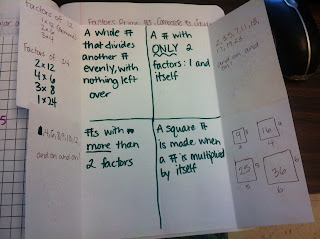 Factors of 12
Factors of 24
2 x 12
4 x 6
3 x 8
1 x 24
Factors Prime #s Composite #s Square
A whole #
that divides
another #
evenly, with
nothing left
over
A # with
ONLY 2
factors: 1 and
itself
#s with
more than
2 factors
A square #
is made when
a # is multiplied
by itself
and on and on!
9
3
16
4
25
5
36
6